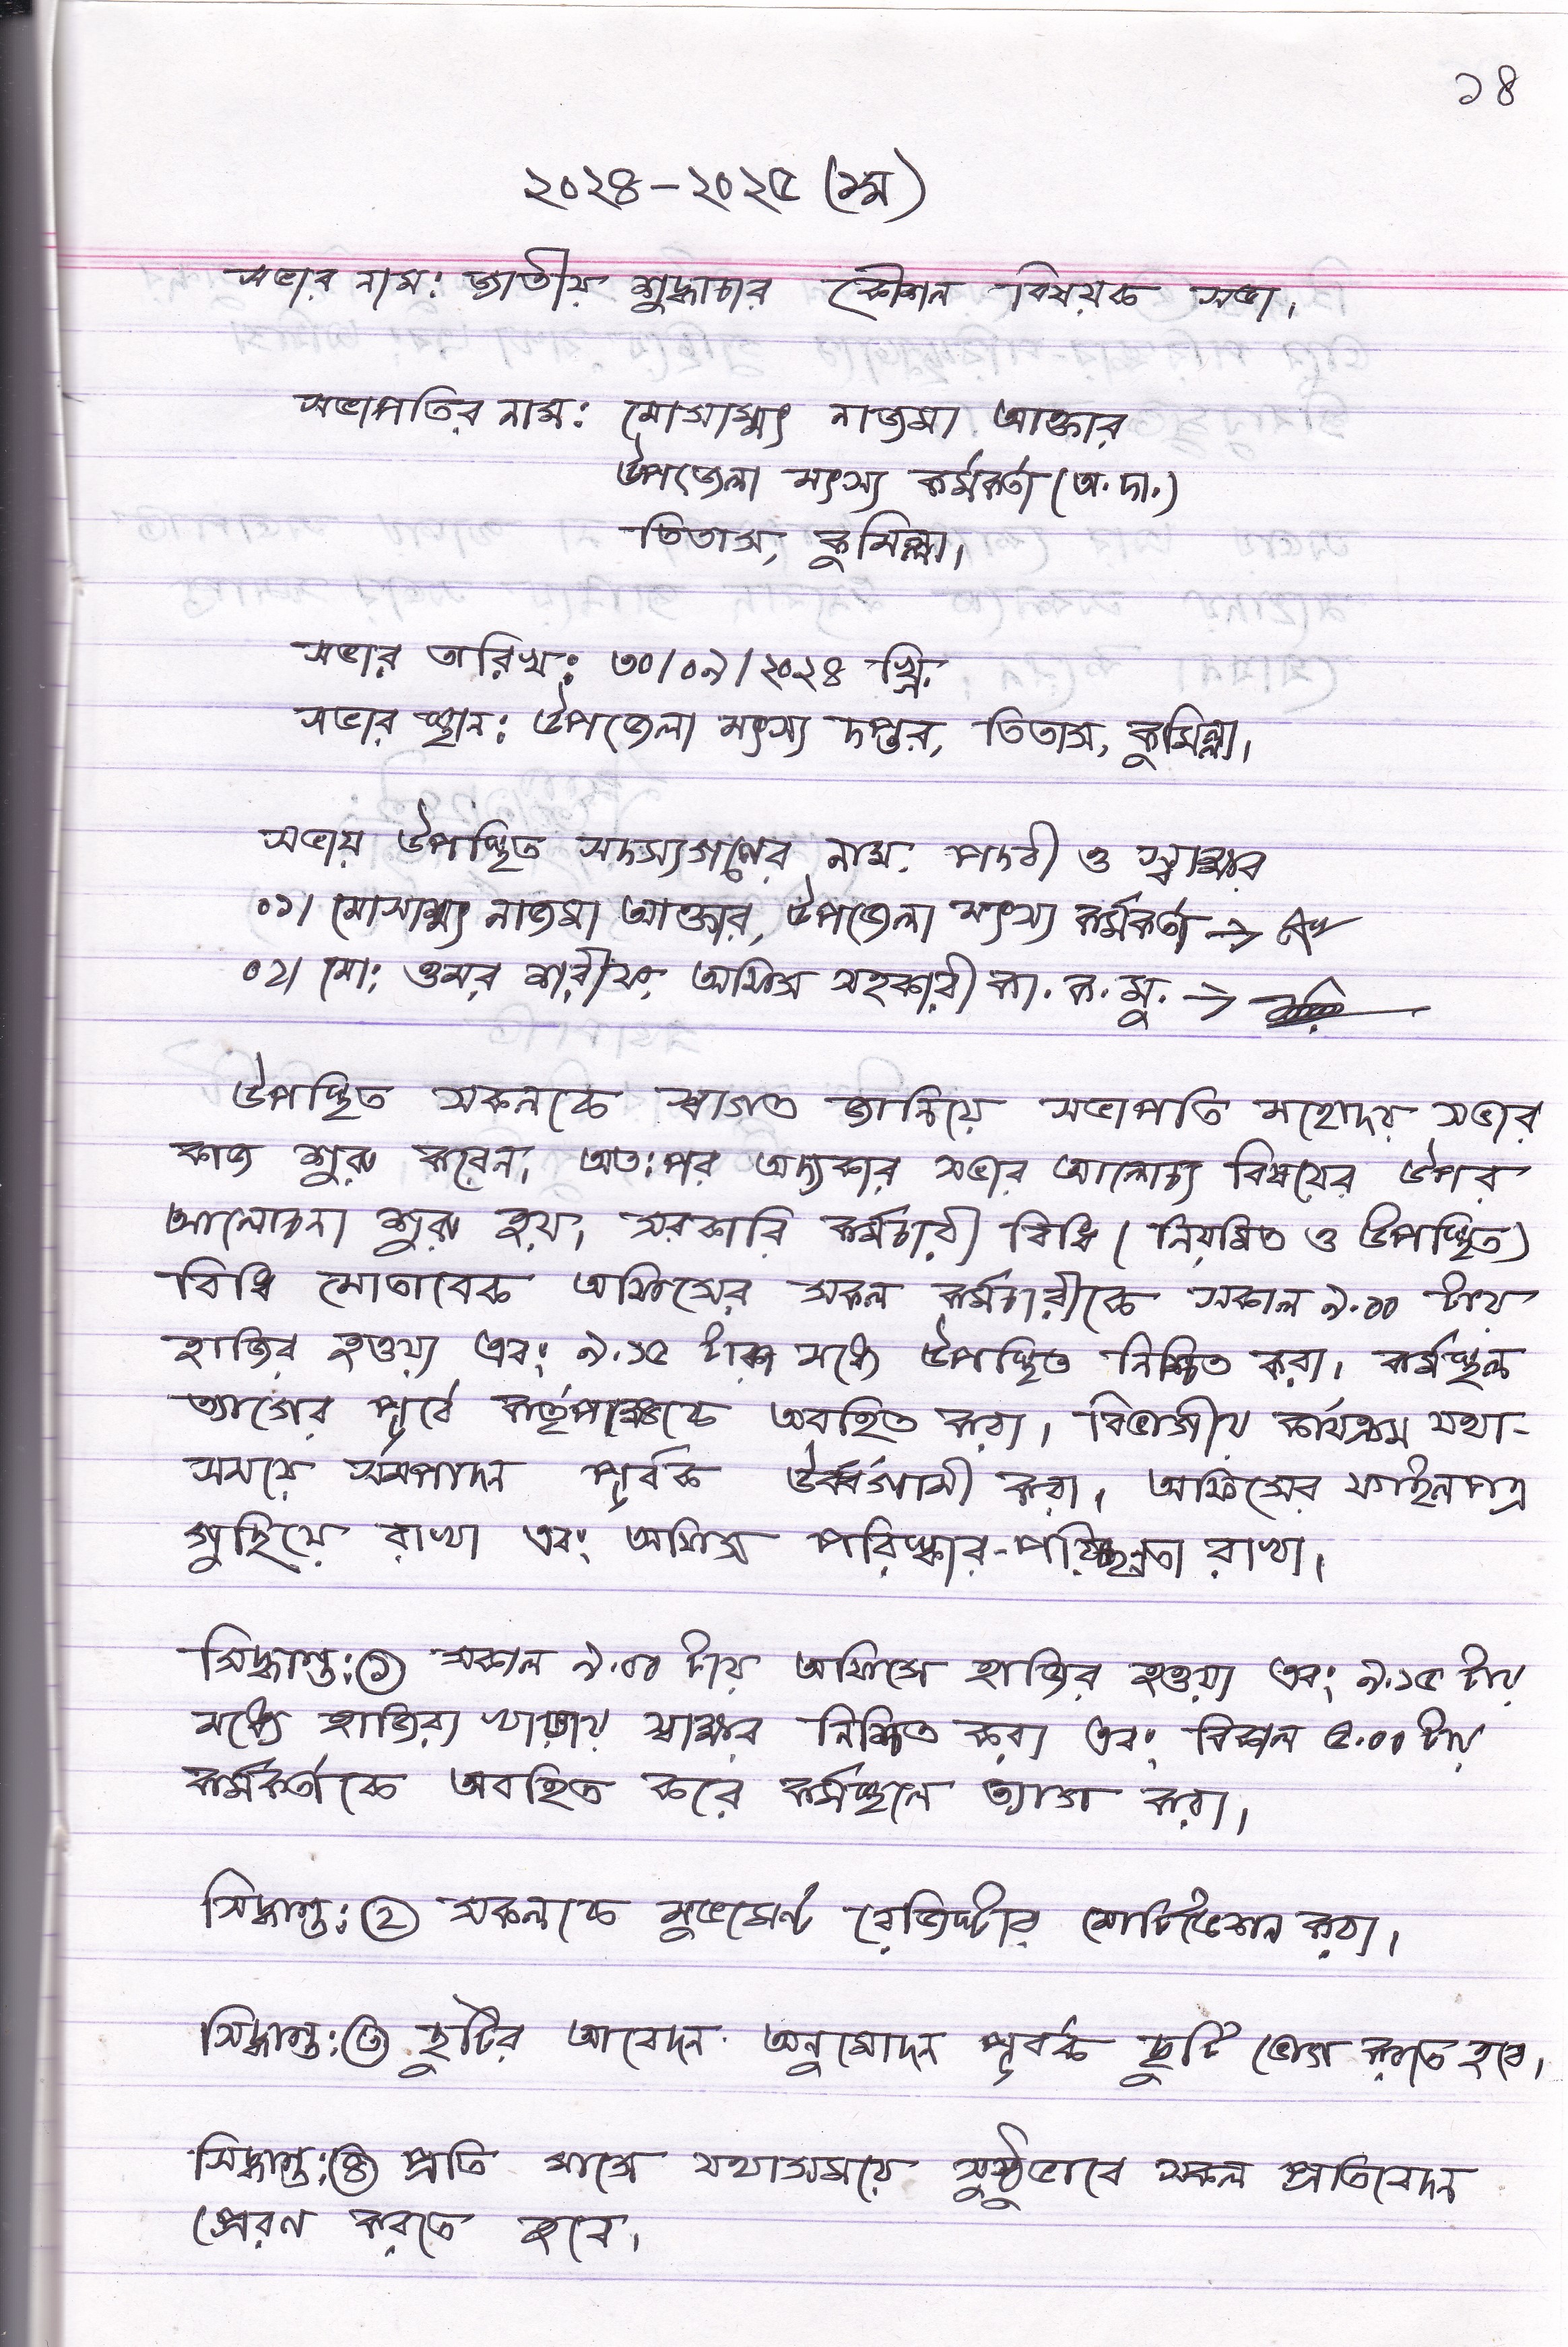 ১৪
২০২৪-২০২৫ (১ম)
সভার নাম: জাতীয় শুদ্ধাচার কৌশল বিষয়ক সভা।
সভাপতির নাম: মোসাম্মৎ নাজমা আক্তার
উপজেলা মৎস্য কর্মকর্তা (অ.দা.)
তিতাস, কুমিল্লা।
সভার তারিখ: ৩০/০৯/২০২৪ খ্রি.
সভার স্থান: উপজেলা মৎস্য দপ্তর, তিতাস, কুমিল্লা।
সভায় উপস্থিত সদস্যগণের নাম. পদবী ও স্বাক্ষর
০১। মোসাম্মৎ নাজমা আক্তার, উপজেলা মৎস্য কর্মকর্তা →
০২। মো: ওমর শরীফ, অফিস সহকারী কা. ক. মু. →
উপস্থিত সকলকে স্বাগত জানিয়ে সভাপতি মহোদয় সভার
কাজ শুরু করেন। অত:পর অদ্যকার সভার আলোচ্য বিষয়ের উপর
আলোচনা শুরু হয়। সরকারি কর্মচারী বিধি (নিয়মিত ও উপস্থিত)
বিধি মোতাবেক অফিসের সকল কর্মচারীকে সকাল ৯.০০ টায়
হাজির হওয়া এবং ৯.১৫ টার মধ্যে উপস্থিত নিশ্চিত করা। কর্মস্থল
ত্যাগের পূর্বে কর্তৃপক্ষকে অবহিত করা। বিভাগীয় কার্যক্রম যথা-
সময়ে সম্পাদন পূর্বক উর্ধ্বগামী করা। অফিসের ফাইলপত্র
গুছিয়ে রাখা এবং অফিস পরিস্কার-পরিচ্ছন্নতা রাখা।
সিদ্ধান্ত:(১) সকাল ৯.০০ টায় অফিসে হাজির হওয়া এবং ৯.১৫ টায়
মধ্যে হাজিরা খাতায় স্বাক্ষর নিশ্চিত করা এবং বিকাল ৫.০০ টায়
কর্মকর্তাকে অবহিত করে কর্মস্থলে ত্যাগ করা।
সিদ্ধান্ত:(২) সকলকে মুভমেন্ট রেজিস্টার মোটিভেশন করা।
সিদ্ধান্ত:(৩) ছুটির আবেদন অনুমোদন পূবর্ক ছুটি ভোগ করতে হবে।
সিদ্ধান্ত:(৪) প্রতি মাসে যথাসময়ে সুষ্ঠুভাবে সকল প্রতিবেদন
প্রেরণ করতে হবে।